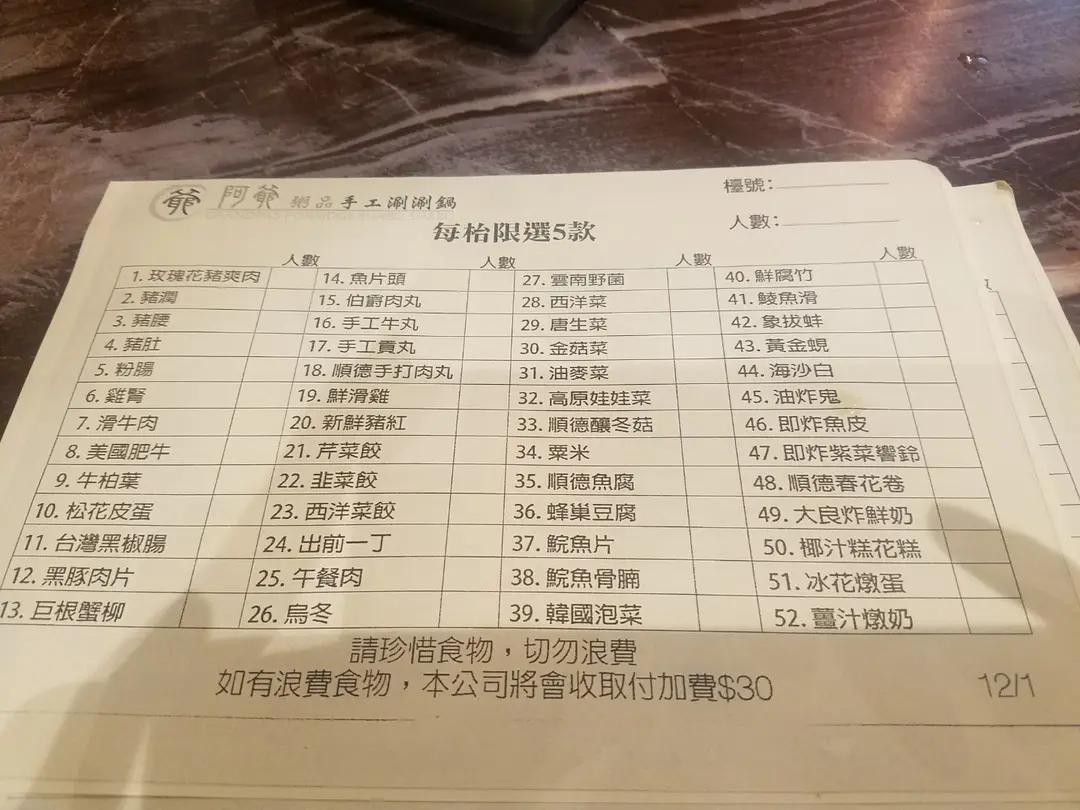 爺 阿爺 粥品 手工涮涮鍋
檯號:
人數:
每枱限選5款
人數 人數 人數 人數
1. 玫瑰花豬爽肉
2. 豬潤
3. 豬腰
4. 豬肚
5. 粉腸
6. 雞腎
7. 滑牛肉
8. 美國肥牛
9. 牛柏葉
10. 松花皮蛋
11. 台灣黑椒腸
12. 黑豚肉片
13. 巨根蟹柳
14. 魚片頭
15. 伯爵肉丸
16. 手工牛丸
17. 手工貢丸
18. 順德手打肉丸
19. 鮮滑雞
20. 新鮮豬紅
21. 芹菜餃
22. 韭菜餃
23. 西洋菜餃
24. 出前一丁
25. 午餐肉
26. 烏冬
27. 雲南野菌
28. 西洋菜
29. 唐生菜
30. 金菇菜
31. 油麥菜
32. 高原娃娃菜
33. 順德釀冬菇
34. 粟米
35. 順德魚腐
36. 蜂巢豆腐
37. 鯇魚片
38. 鯇魚骨腩
39. 韓國泡菜
40. 鮮腐竹
41. 鯪魚滑
42. 象拔蚌
43. 黃金蜆
44. 海沙白
45. 油炸鬼
46. 即炸魚皮
47. 即炸紫菜響鈴
48. 順德春花卷
49. 大良炸鮮奶
50. 椰汁糕花糕
51. 冰花燉蛋
52. 薑汁燉奶
請珍惜食物，切勿浪費
如有浪費食物，本公司將會收取付加費$30
12/1